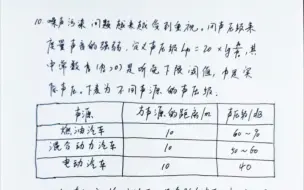 10. 噪声污染问题越来越受到重视。用声压级来
度量声音的强弱，定义声压级 Lp = 20 × lg p/p₀，其
中常数 p₀(p₀>0) 是听觉下限阈值，p是实
际声压。下表为不同声源的声压级。
声源 与声源的距离/m 声压级/dB
燃油汽车 10 60~90
混合动力汽车 10 50~60
电动汽车 10 40